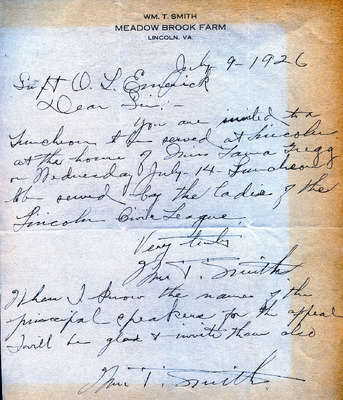 WM. T. SMITH
MEADOW BROOK FARM
LINCOLN, VA.
July 9 - 1926
Supt O. L. Emerick
Dear Sir: -
You are invited to a
luncheon to be served at Lincoln
at the home of Miss Laura Gregg
on Wednesday July - 14 Luncheon
to be served by the ladies of the
Lincoln Civic League.
Very truly
Wm. T. Smith
When I know the names of the
principal speakers for the appeal
I will be glad to invite them also
Wm. T. Smith.